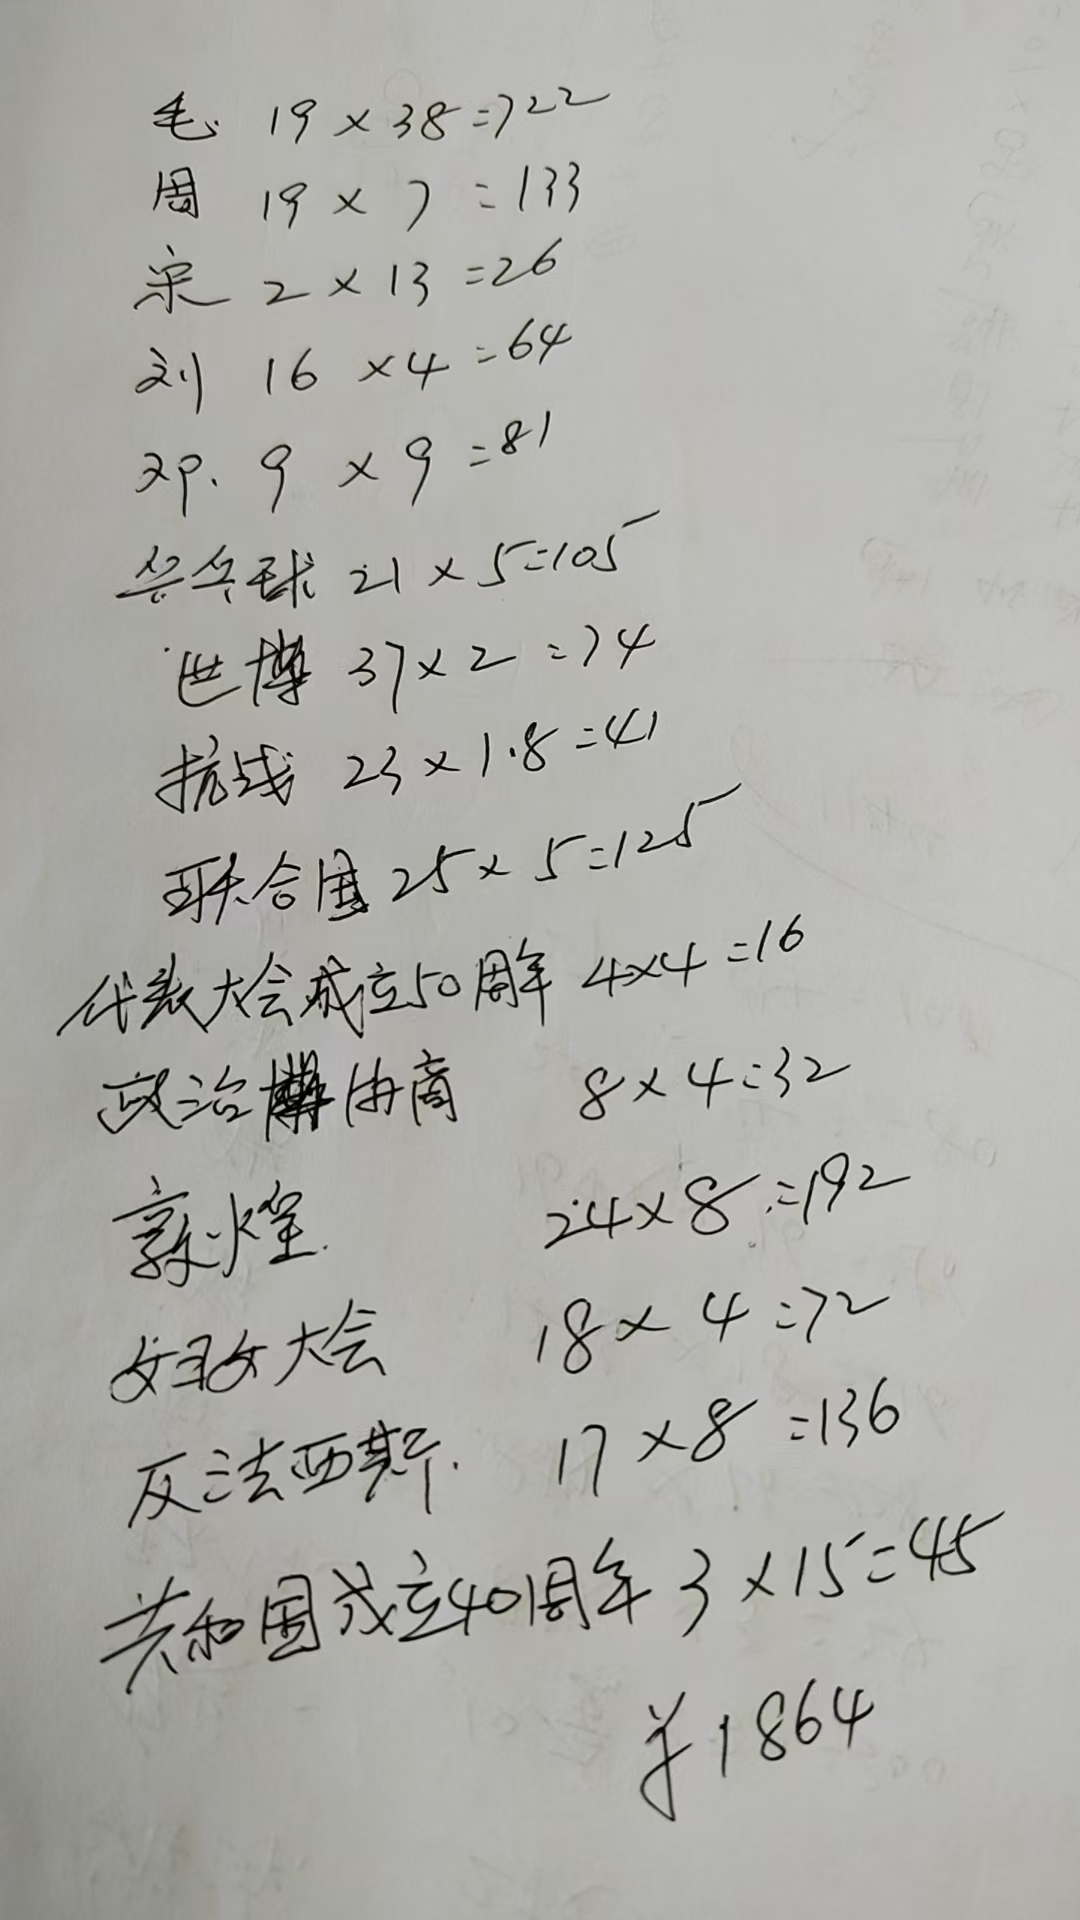 毛 19×38=722
周 19×7=133
宋 2×13=26
刘 16×4=64
邓. 9×9=81
乒乓球 21×5=105
世博 37×2=74
抗战 23×1.8=41
联合国 25×5=125
代表大会成立50周年 4×4=16
政治协商 8×4=32
敦煌 24×8=192
妇女大会 18×4=72
反法西斯. 17×8=136
共和国成立40周年 3×15=45
¥1864